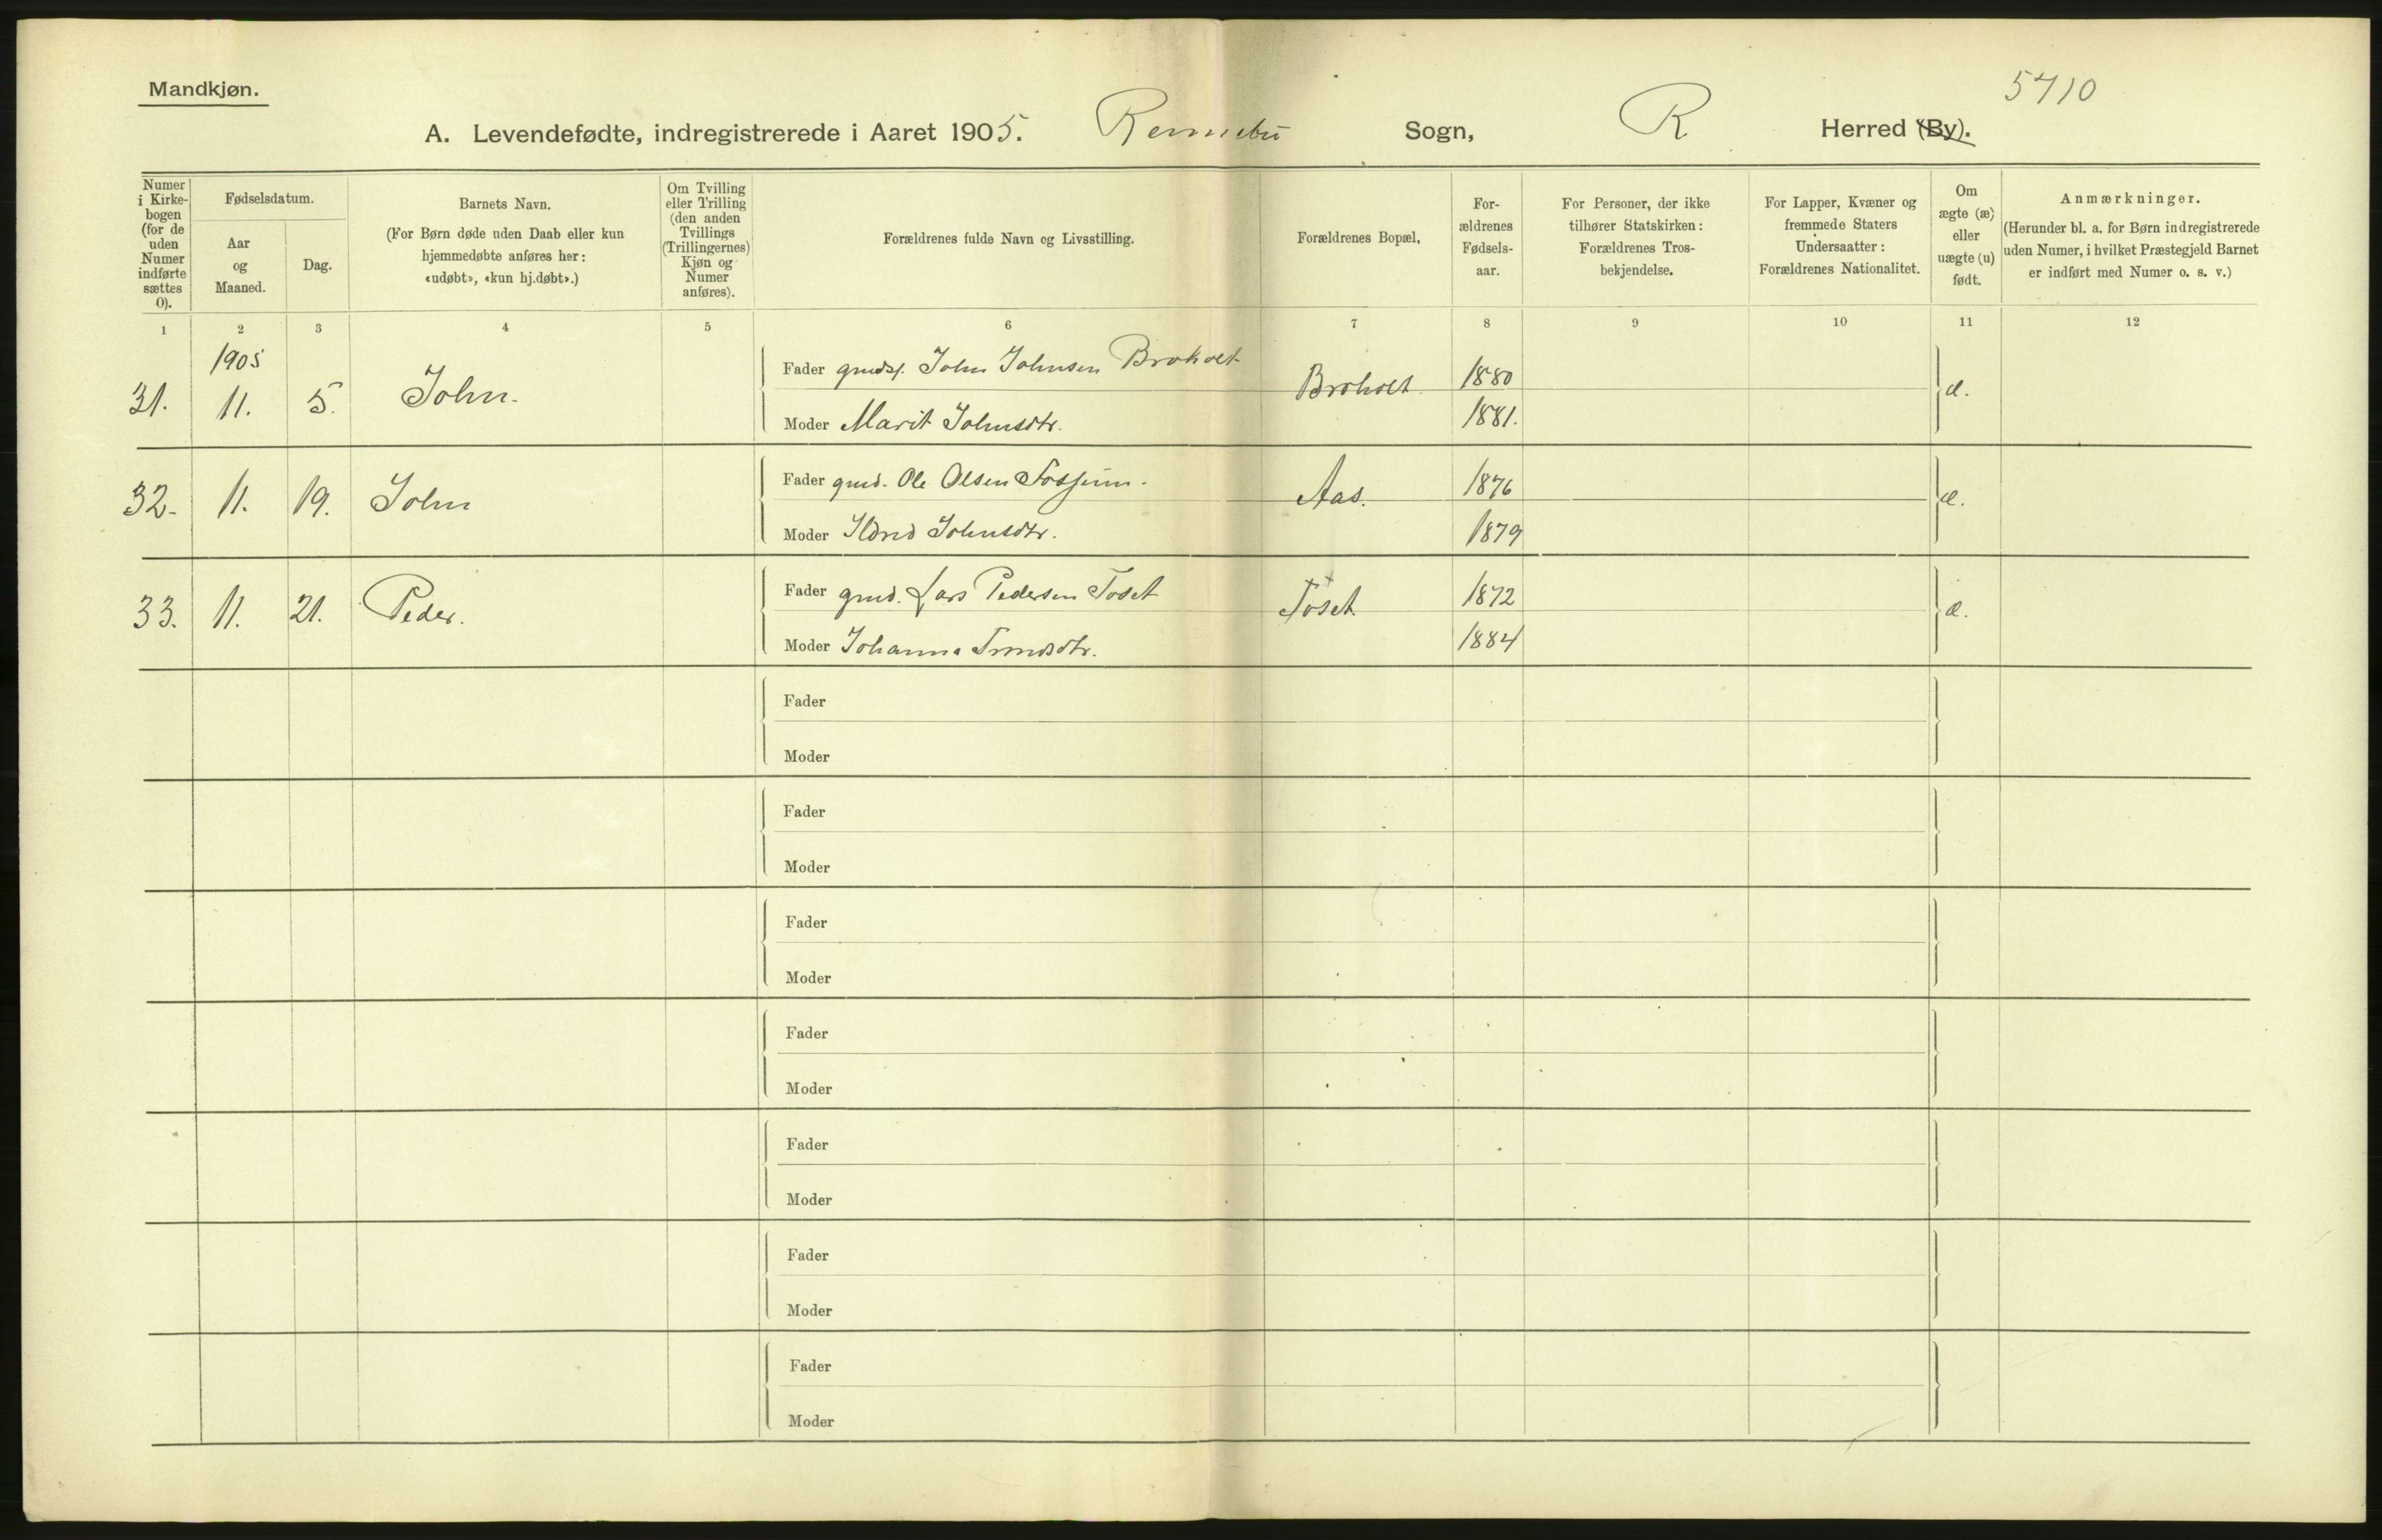 Mandkjøn.
5710
A. Levendefødte, indregistrerede i Aaret 1905. Rennebu Sogn, R Herred (By).
Numer i Kirkebogen (for de uden Numer indførte sættes 0).
Fødselsdatum.
Aar og Maaned.
Dag.
Barnets Navn.
(For Børn døde uden Daab eller kun hjemmedøbte anføres her: «udøbt», «kun hj.døbt».)
Om Tvilling eller Trilling (den anden Tvillings (Trillingernes) Kjøn og Numer anføres).
Forældrenes fulde Navn og Livsstilling.
Forældrenes Bopæl,
Forældrenes Fødselsaar.
For Personer, der ikke tilhører Statskirken: Forældrenes Trosbekjendelse.
For Lapper, Kvæner og fremmede Staters Undersaatter: Forældrenes Nationalitet.
Om ægte (æ) eller uægte (u) født.
Anmærkninger.
(Herunder bl. a. for Børn indregistrerede uden Numer, i hvilket Præstegjeld Barnet er indført med Numer o. s. v.)
1 2 3 4 5 6 7 8 9 10 11 12
1905
31. 11. 5. John. Fader John Johnsen Broholt Broholt 1880 æ.
Moder Marit Johnsdtr. 1881.
32. 11. 19. John Fader gmd. Ole Olsen Fossum. Aas. 1876 æ.
Moder Ildrid Johnsdtr. 1879
33. 11. 21. Peder. Fader gmd. Lars Pedersen Toset Toset. 1872 æ.
Moder Johanna Trondsdtr. 1884
Fader
Moder
Fader
Moder
Fader
Moder
Fader
Moder
Fader
Moder
Fader
Moder
Fader
Moder